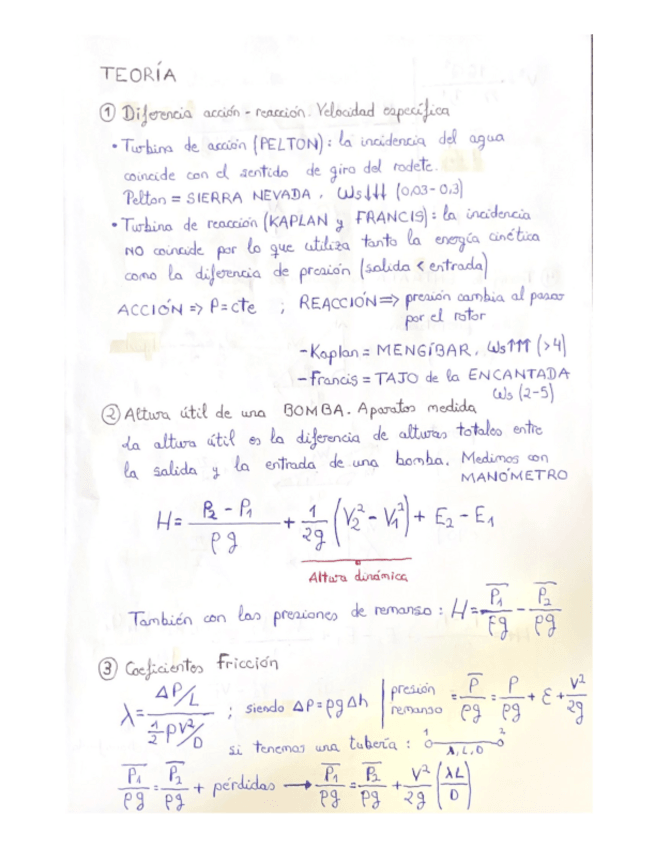 TEORÍA
① Diferencia acción - reacción. Velocidad específica
• Turbina de acción (PELTON): la incidencia del agua
coincide con el sentido de giro del rodete.
Pelton = SIERRA NEVADA. Ws↓↓↓ (0,03-0,3)
• Turbina de reacción (KAPLAN y FRANCIS): la incidencia
NO coincide por lo que utiliza tanto la energía cinética
como la diferencia de presión (salida < entrada)
ACCIÓN => P=cte ; REACCIÓN=> presión cambia al pasar
por el rotor
- Kaplan = MENGÍBAR. Ws↑↑↑ (>4)
- Francis = TAJO de la ENCANTADA
Ws (2-5)
② Altura útil de una BOMBA. Aparatos medida
La altura útil es la diferencia de alturas totales entre
la salida y la entrada de una bomba. Medimos con
MANÓMETRO
H = (P₂ - P₁)/(ρg) + 1/(2g) (V₂² - V₁²) + E₂ - E₁
Altura dinámica
También con las presiones de remanso: H = P̅₁/(ρg) - P̅₂/(ρg)
③ Coeficientos Fricción
λ = (ΔP/L)/(½ρV²/D) ; siendo ΔP = ρgΔh | presión remanso = P̅/(ρg) = P/(ρg) + ε + V²/(2g)
si tenemos una tubería: 1 2 λ, L, D
P̅₁/(ρg) = P̅₂/(ρg) + pérdidas → P̅₁/(ρg) = P̅₂/(ρg) + V²/(2g) (λL/D)